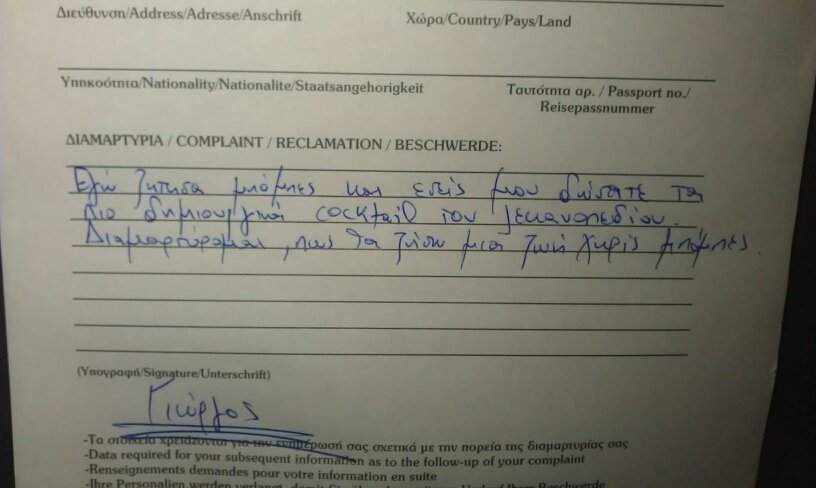 Διεύθυνση/Address/Adresse/Anschrift
Χώρα/Country/Pays/Land
Υπηκοότητα/Nationality/Nationalite/Staatsangehorigkeit
Ταυτότητα αρ. / Passport no./
Reisepassnummer
ΔΙΑΜΑΡΤΥΡΙΑ / COMPLAINT / RECLAMATION / BESCHWERDE:
Εγώ ζήτησα μπόμπες και εσείς μου δώσατε τα
πιο δημιουργικά cocktail του λεκανοπεδίου.
Διαμαρτύρομαι, πως θα ζήσω μια ζωή χωρίς μπόμπες.
(Υπογραφή/Signature/Unterschrift)
Γιώργος
-Τα στοιχεία χρειάζονται για την ενημέρωσή σας σχετικά με την πορεία της διαμαρτυρίας σας
-Data required for your subsequent information as to the follow-up of your complaint
-Renseignements demandes pour votre information en suite
-Ihre Personalien werden verlangt, damit Sie